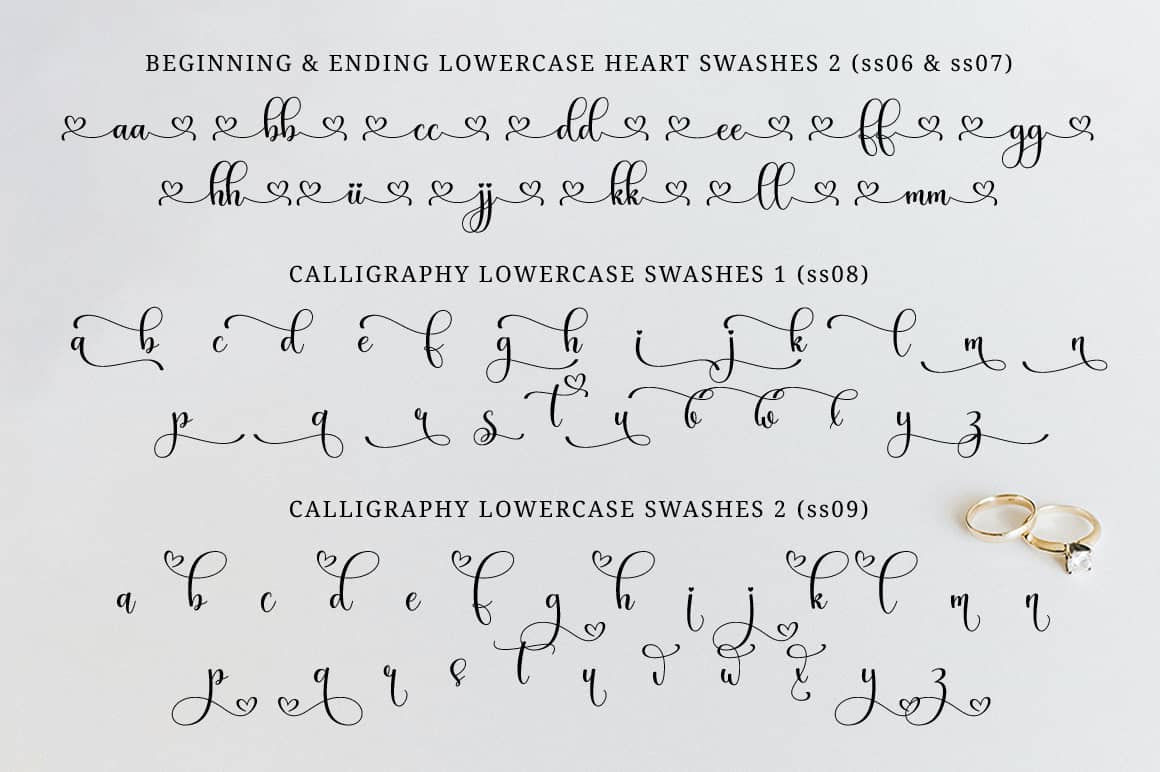 BEGINNING & ENDING LOWERCASE HEART SWASHES 2 (ss06 & ss07)
aa bb cc dd ee ff gg
hh ii jj kk ll mm
CALLIGRAPHY LOWERCASE SWASHES 1 (ss08)
a b c d e f g h i j k l m n
p q r s t u v w x y z
CALLIGRAPHY LOWERCASE SWASHES 2 (ss09)
a b c d e f g h i j k l m n
p q r s t u v w x y z